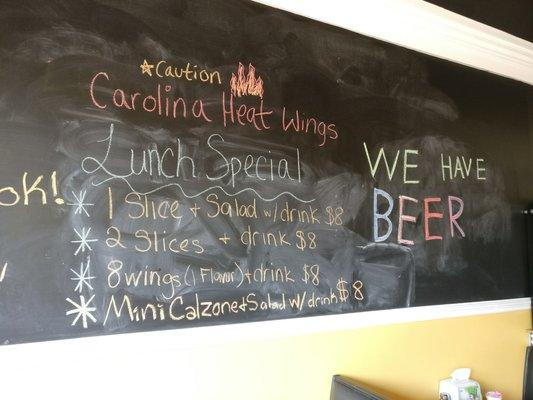 ★Caution
Carolina Heat Wings
Lunch Special
ok!
* 1 Slice + Salad w/ drink $8
* 2 Slices + drink $8
* 8 wings (1 Flavor) + drink $8
* Mini Calzone + Salad w/ drink $8
WE HAVE
BEER